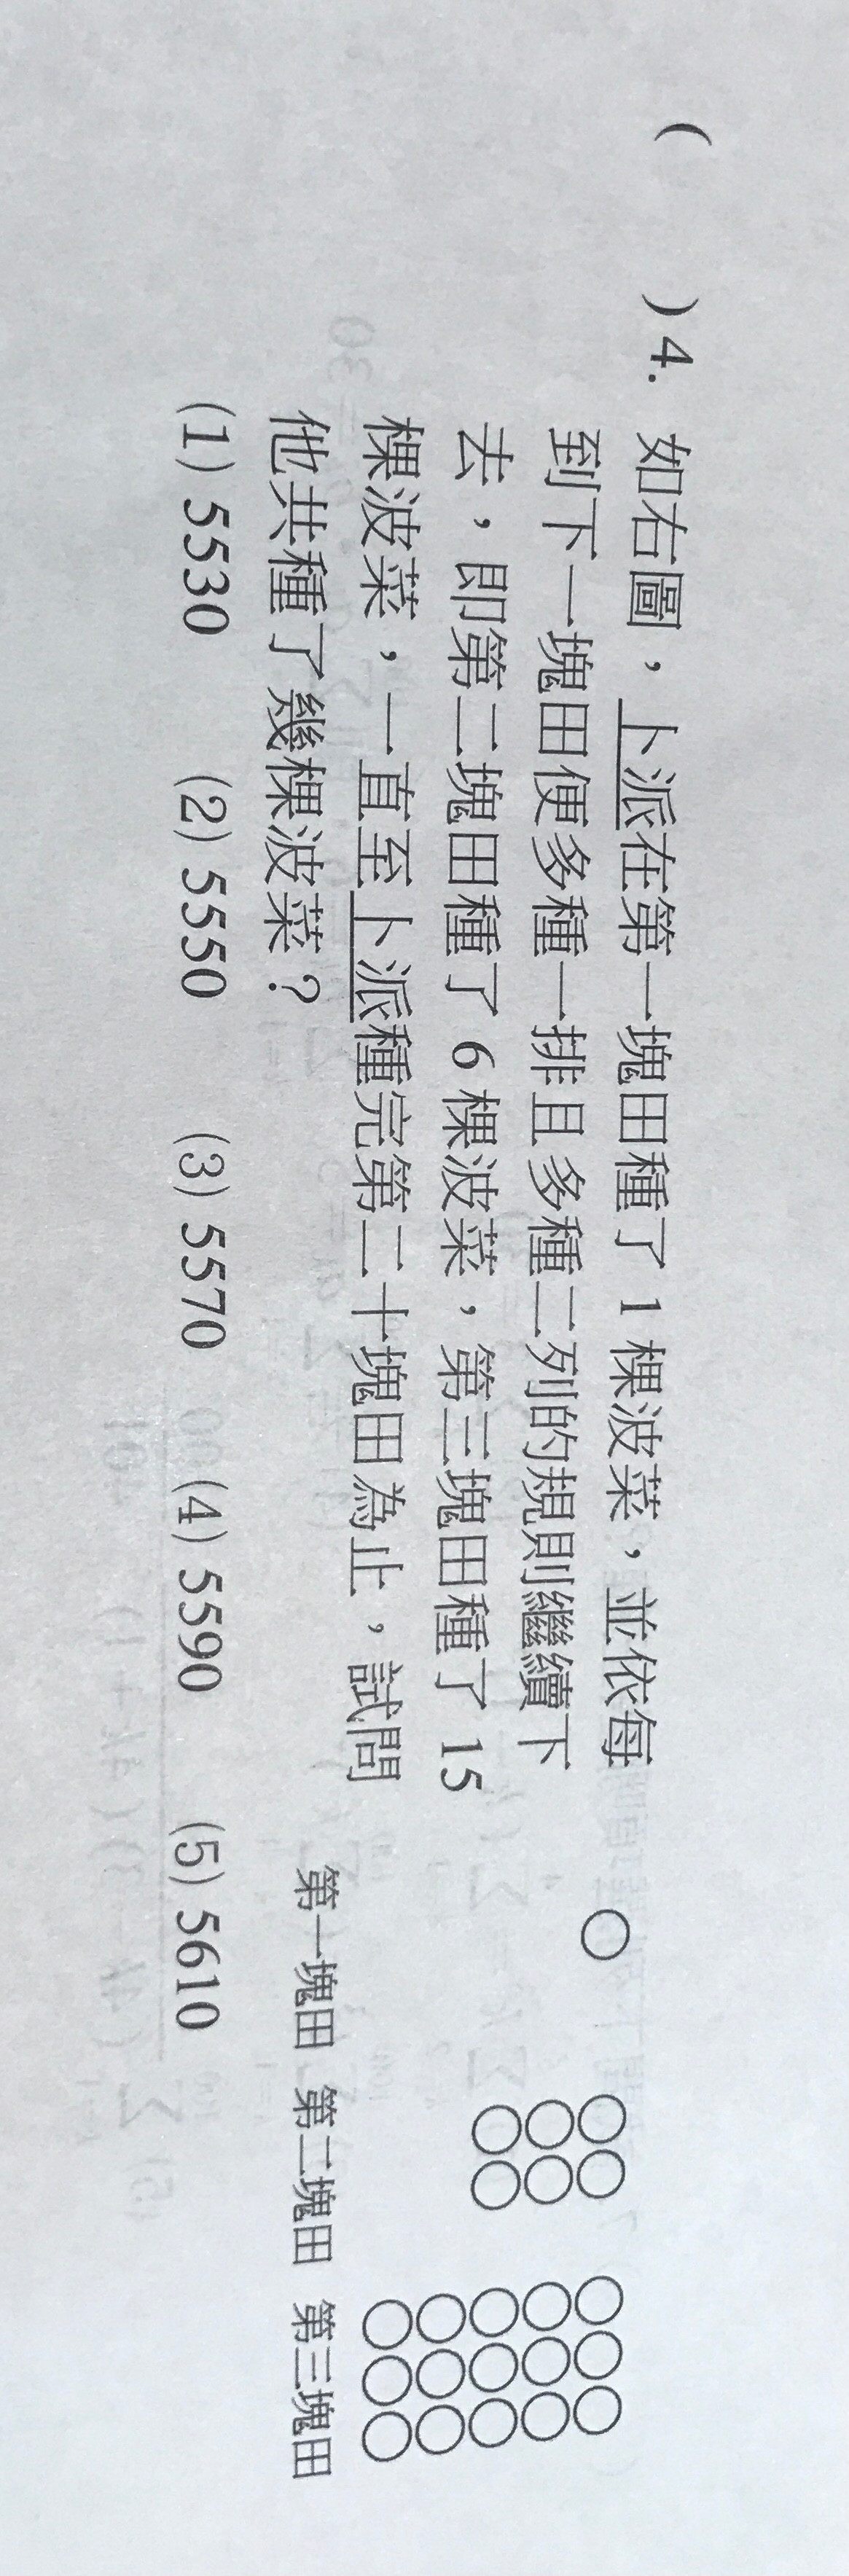 (　　) 4. 如右圖，卜派在第一塊田種了 1 棵波菜，並依每
到下一塊田便多種一排且多種二列的規則繼續下
去，即第二塊田種了 6 棵波菜，第三塊田種了 15
棵波菜，一直至卜派種完第二十塊田為止，試問
他共種了幾棵波菜？
(1) 5530　(2) 5550　(3) 5570　(4) 5590　(5) 5610
第一塊田 第二塊田 第三塊田